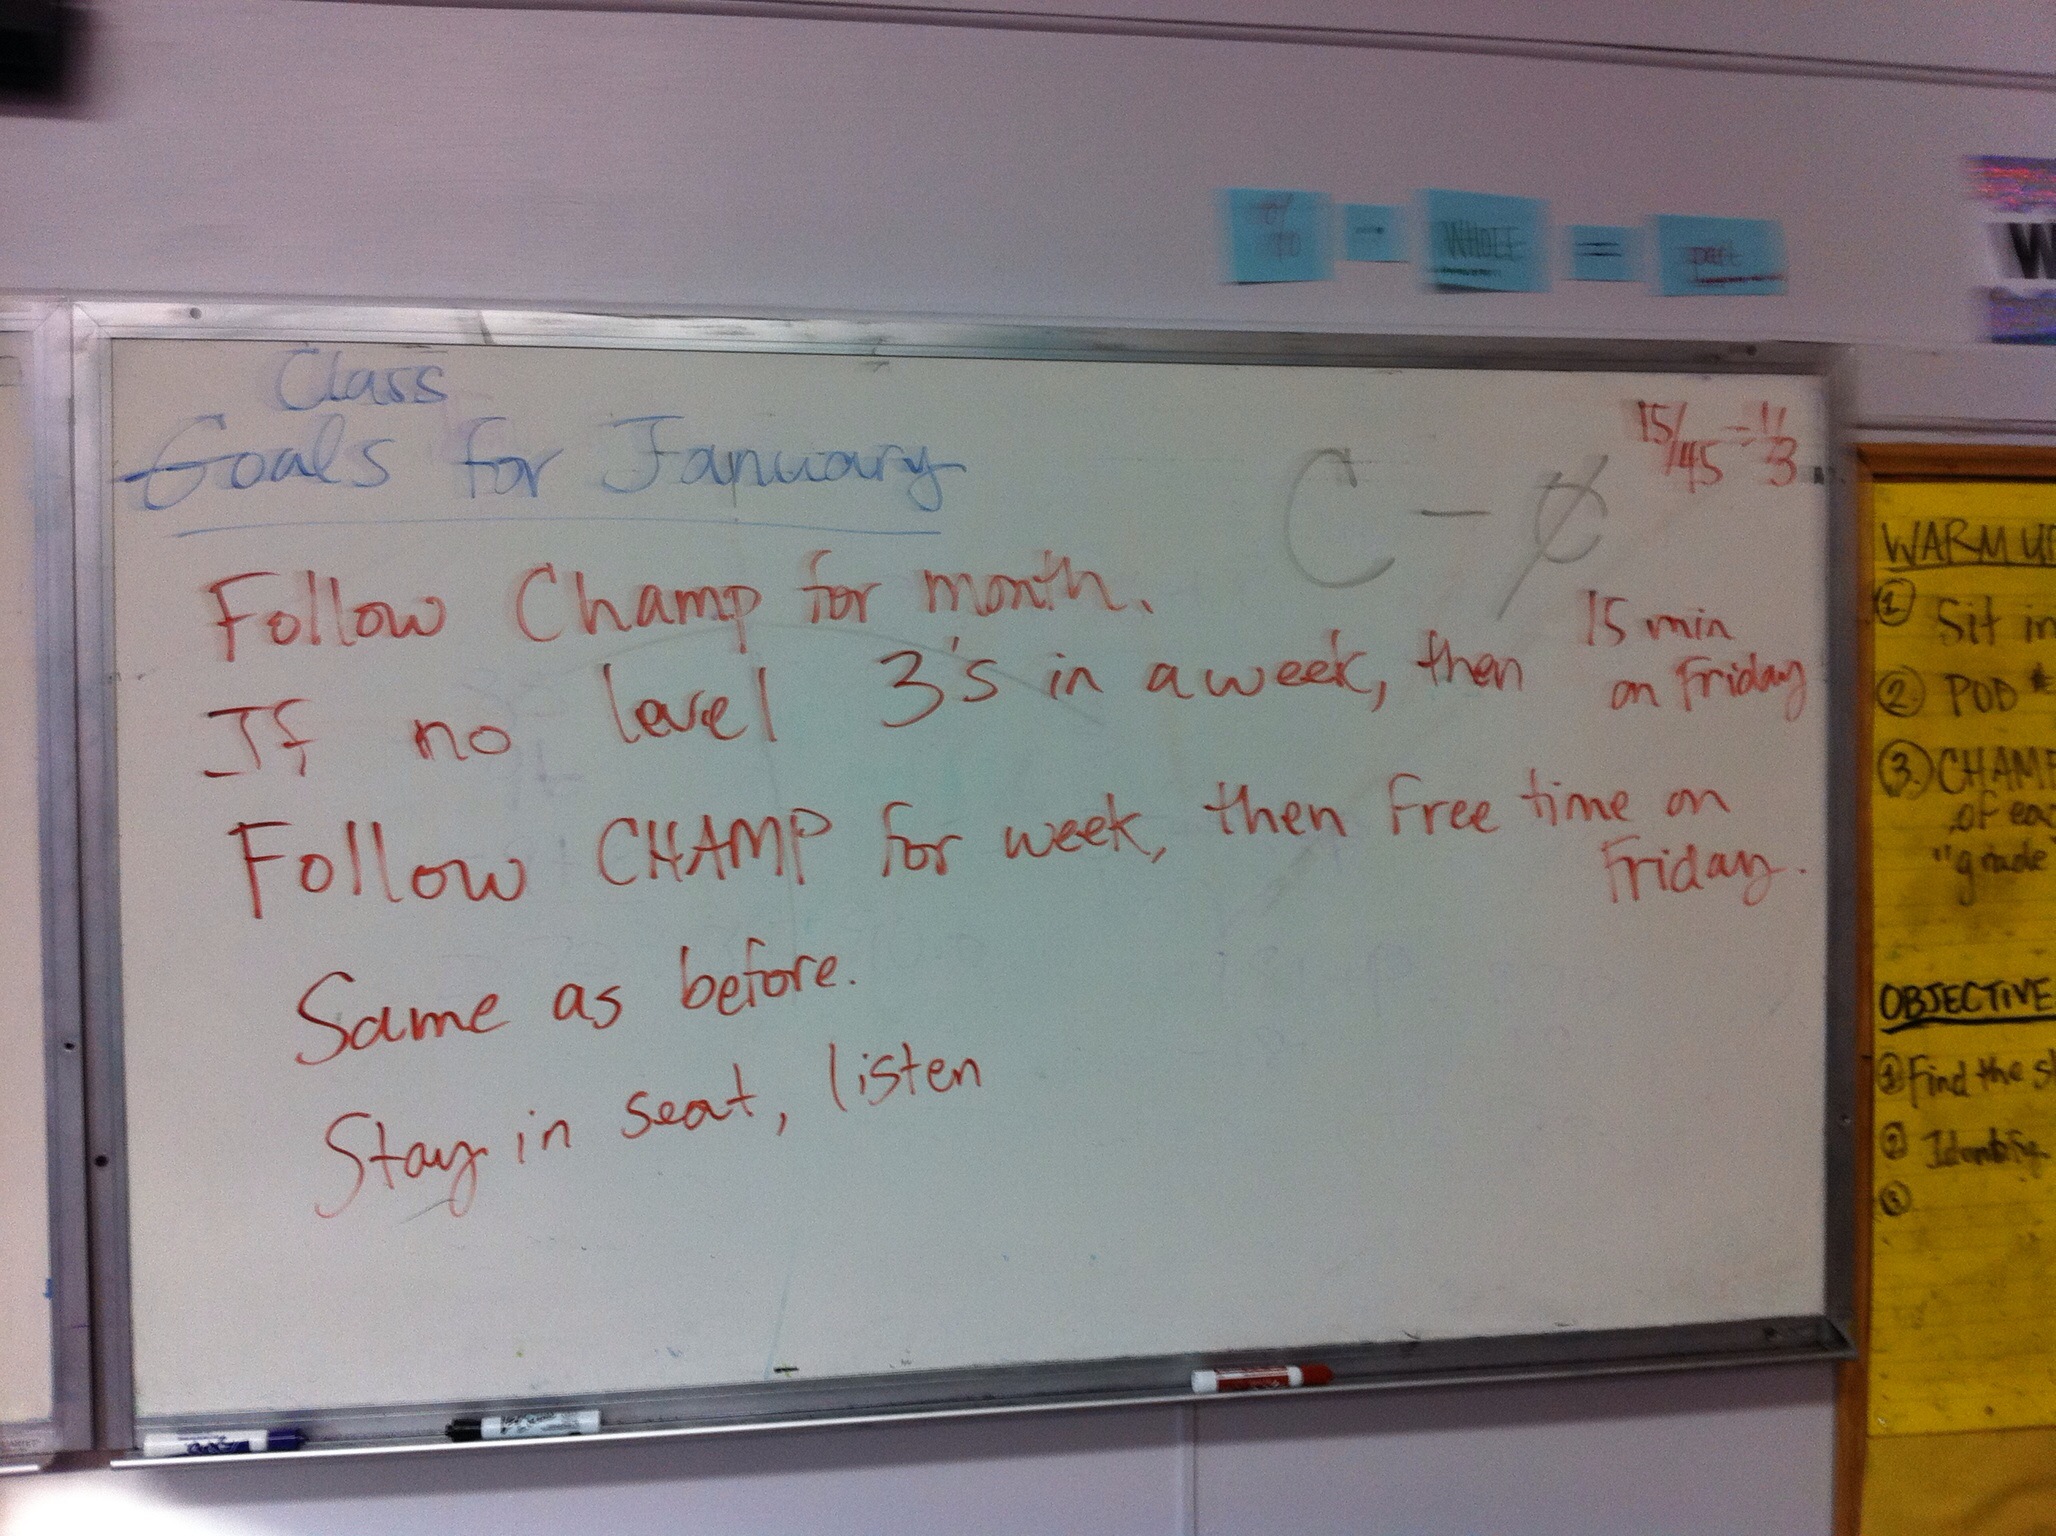 WHOLE = part
W
Class
Goals for January
15/45 = 1/3
C - ₡
Follow Champ for month.
If no level 3's in a week, then 15 min
on Friday
Follow CHAMP for week, then Free time on
Friday.
Same as before.
Stay in seat, listen
WARM UP
① Sit in
② POD *
③ CHAMP
of eac
"grade"
OBJECTIVE
① Find the sl
② Identify
③